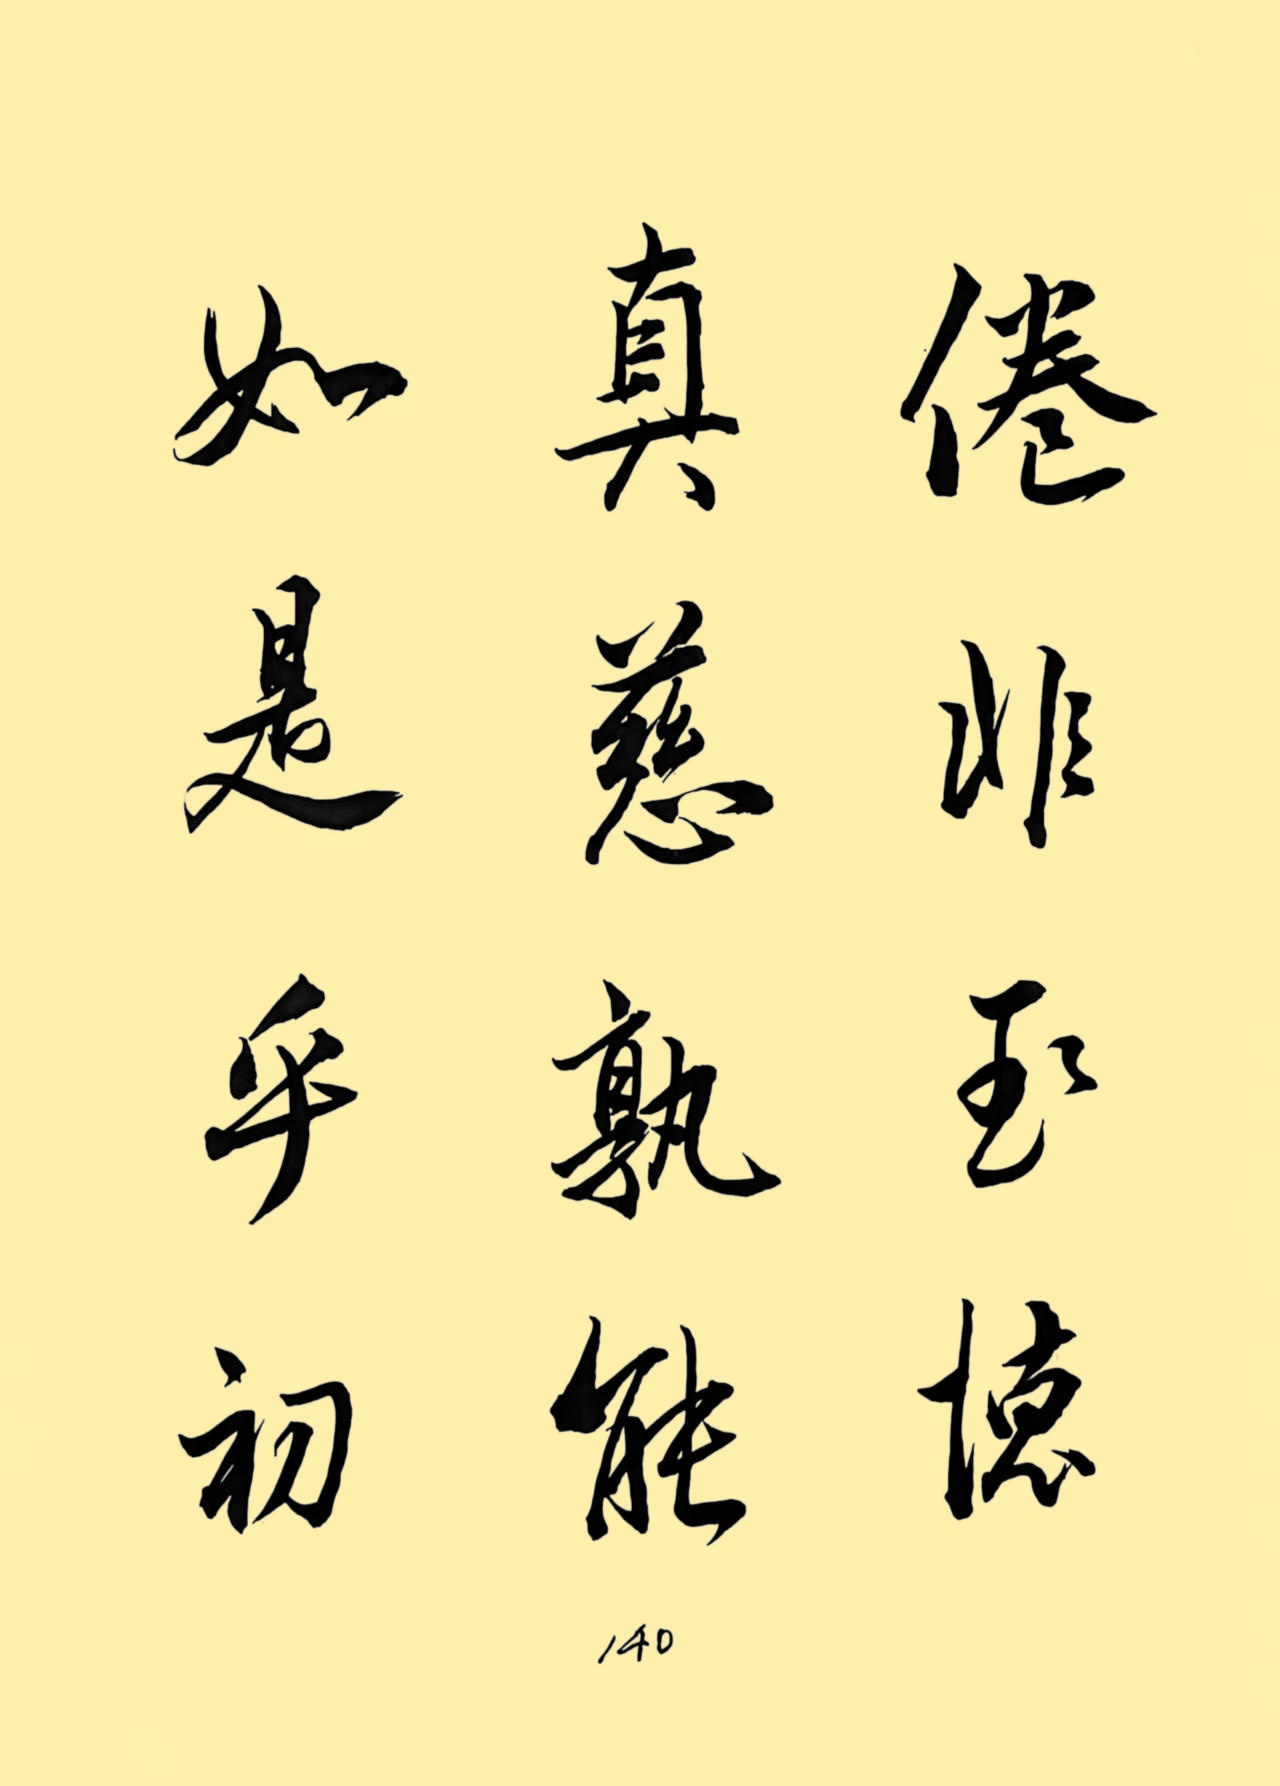 倦非至德
真慈孰能
如是乎初
140